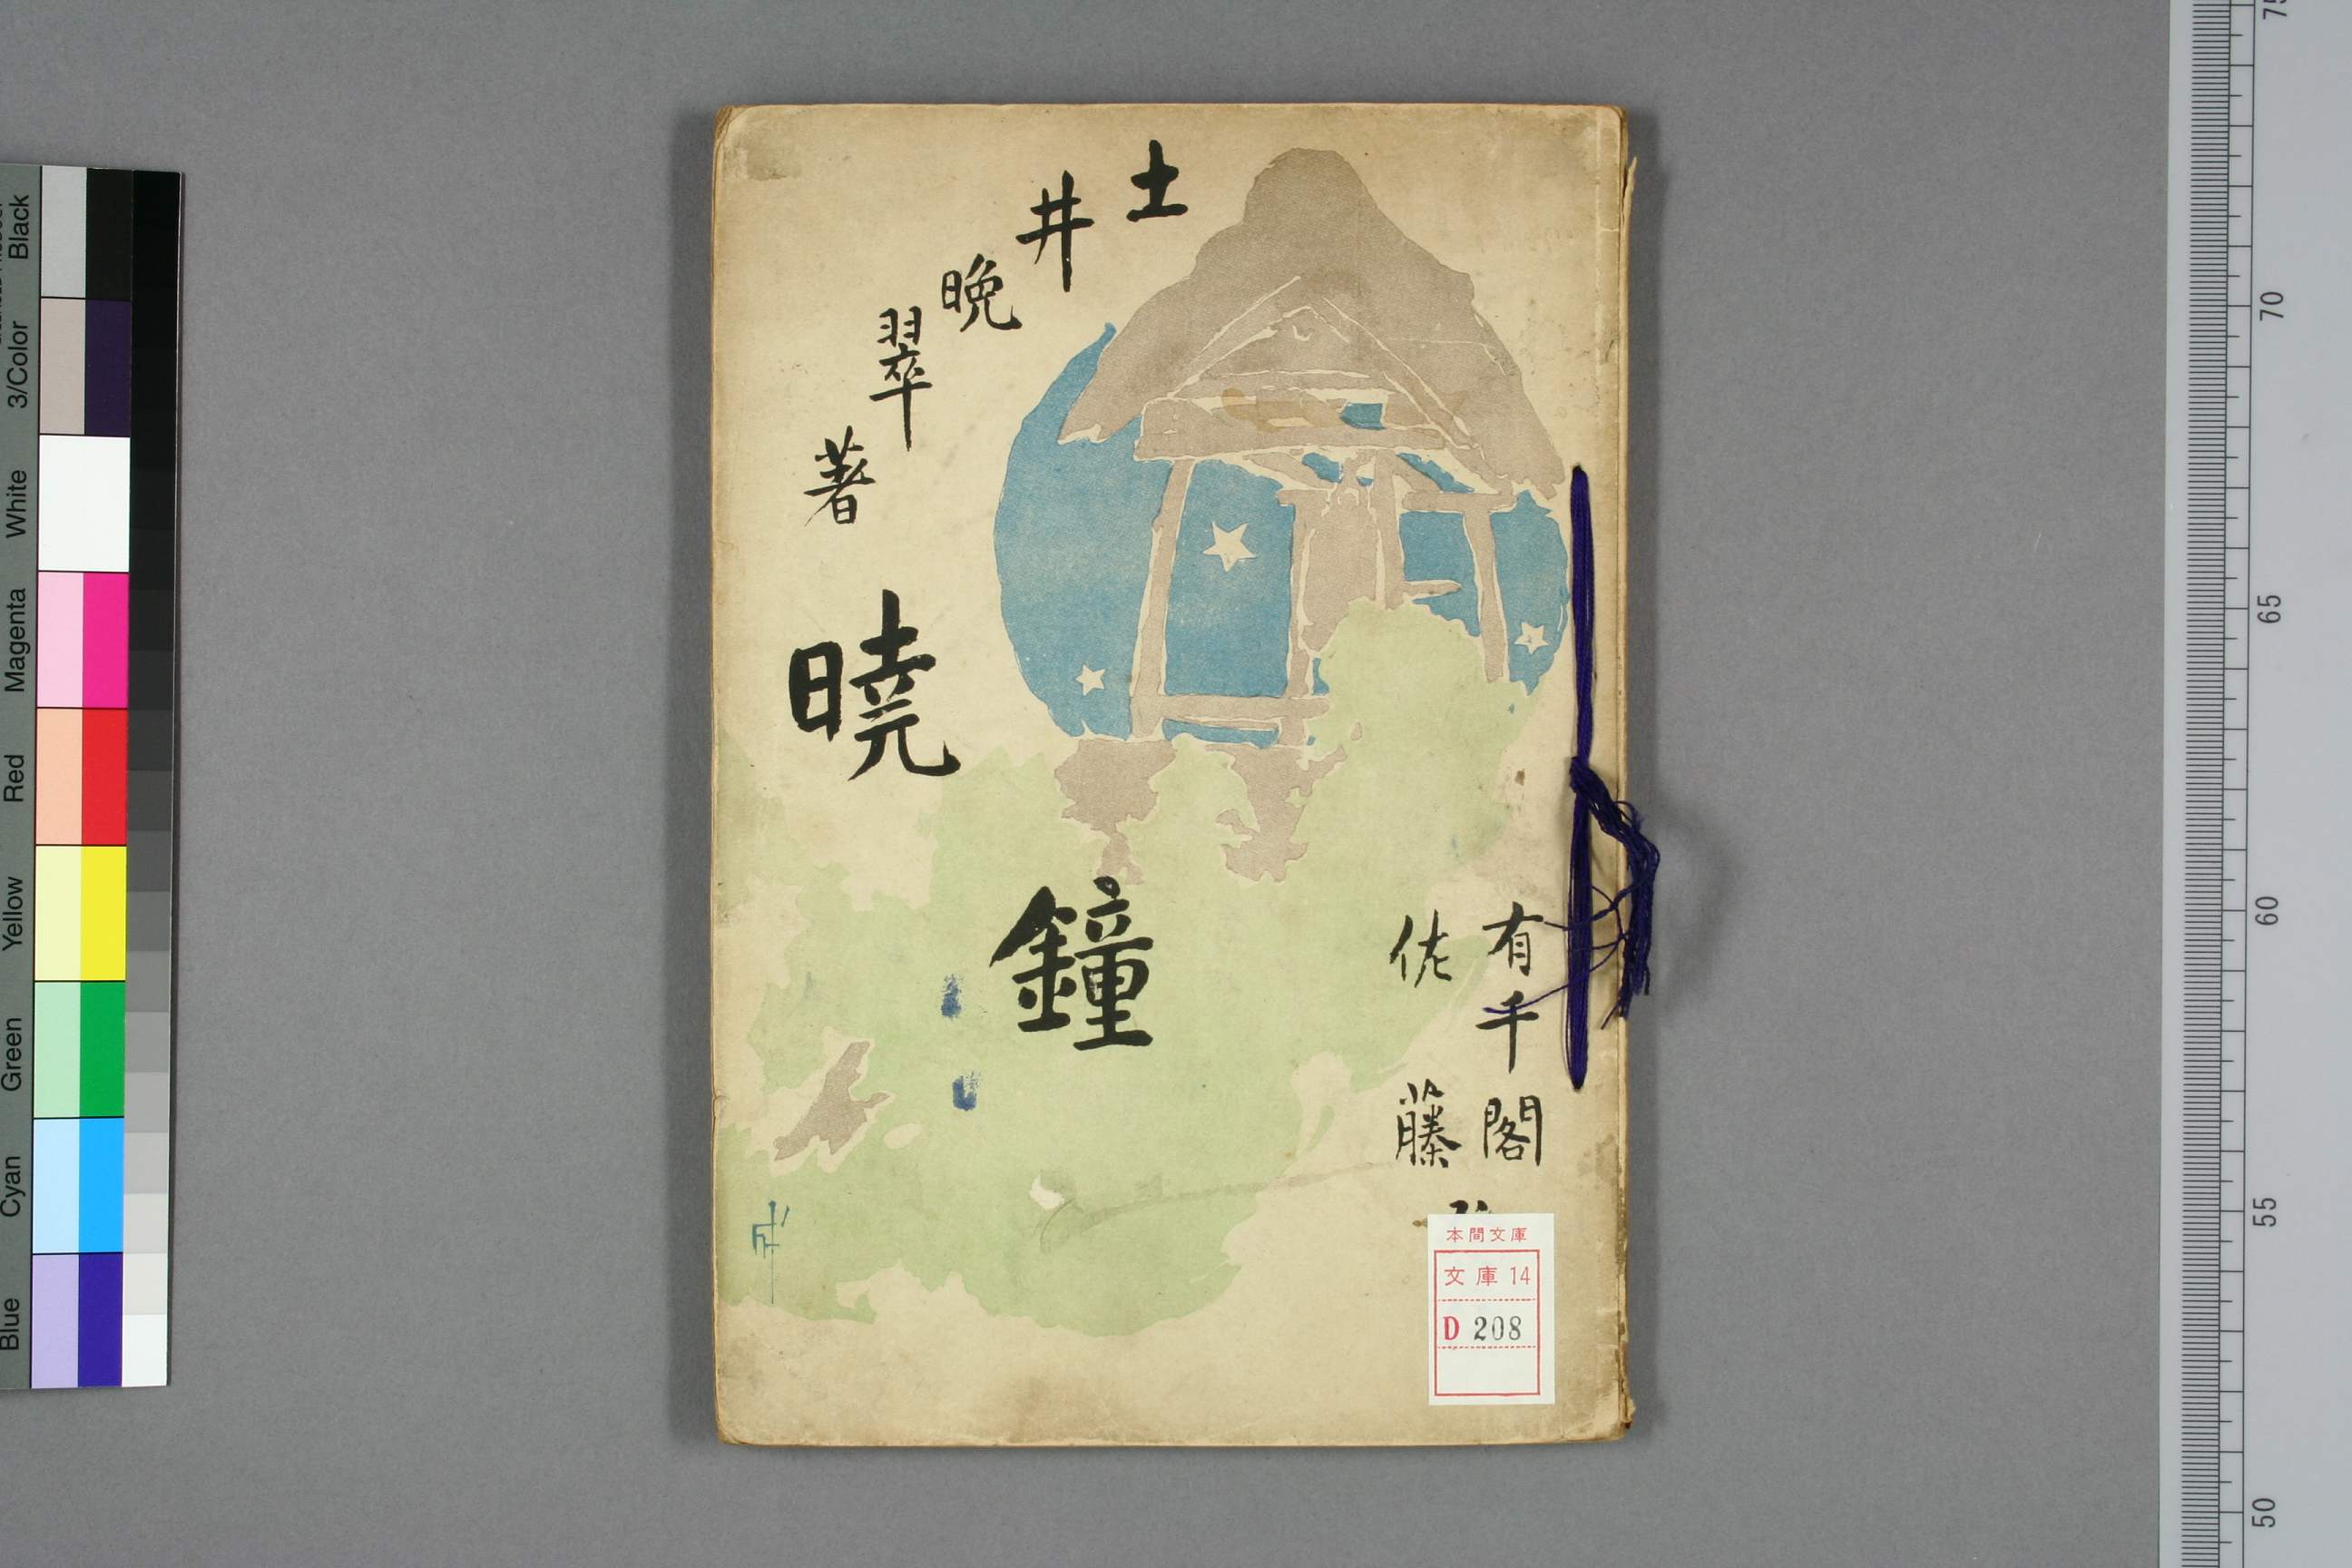 土井晩翠著
暁鐘
有千閣
佐藤
本間文庫
文庫 14
D 208
Black
3/Color
White
Magenta
Red
Yellow
Green
Cyan
Blue
75
70
65
60
55
50